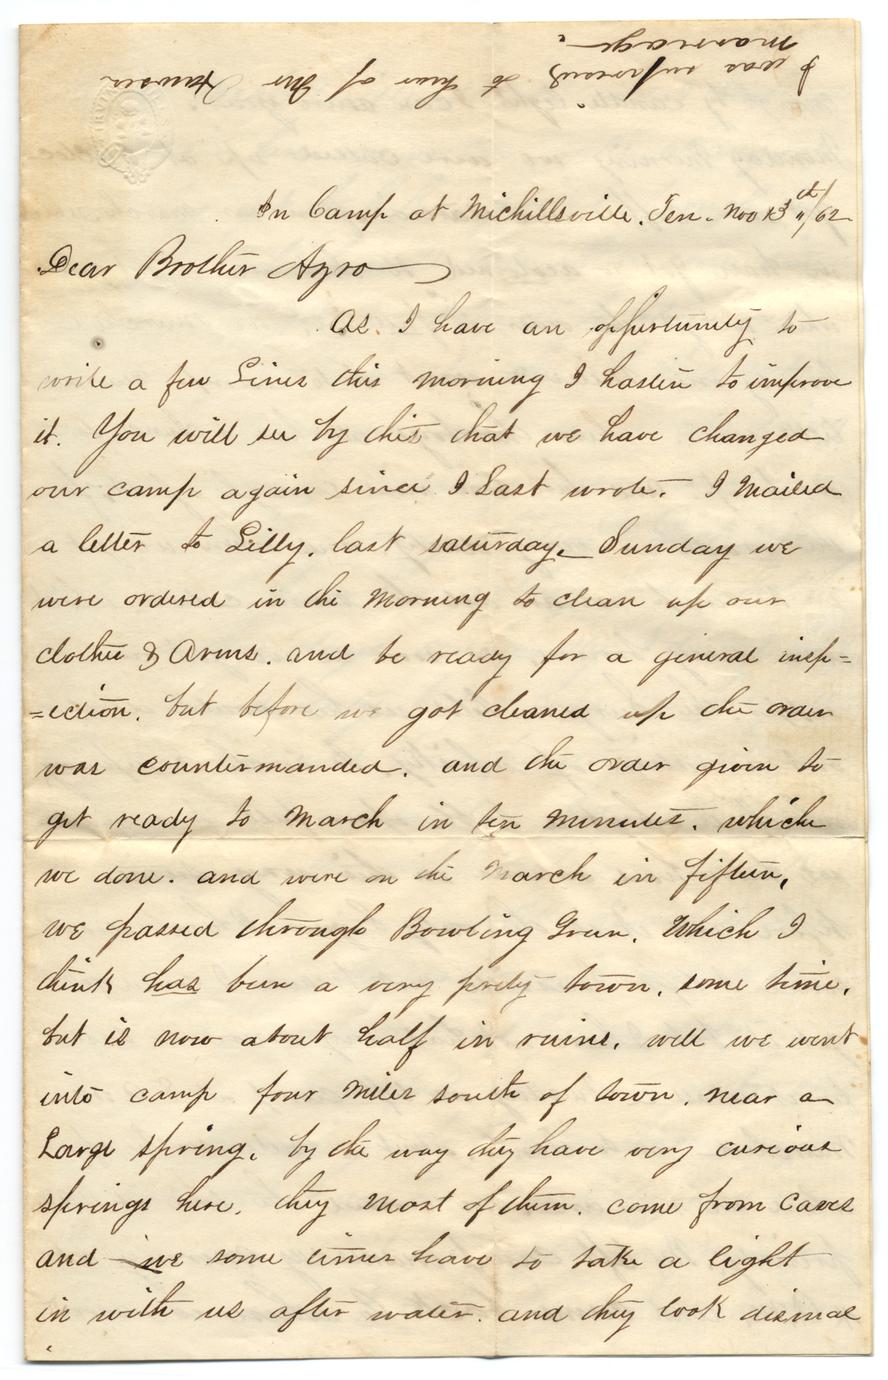 I was surprised to hear of Mr
marriage.
In Camp at Michillsville, Ten. Nov 13th "/62
Dear Brother Azro
As I have an opportunity to
write a few Lines this morning I hasten to improve
it. You will see by this that we have changed
our camp again since I Last wrote. I Mailed
a letter to Lilly, last saturday. Sunday we
were ordered in the Morning to clean up our
clothes & Arms. and be ready for a general insp=
=ection. but before we got cleaned up the order
was countermanded. and the order given to
get ready to March in ten Minutes. which
we done. and were on the March in fifteen,
we passed through Bowling Green. Which I
think has been a very prety town, some time.
but is now about half in ruins. well we went
into camp four Miles south of town, near a
Large spring. by the way they have very curious
springs here. they Most of them. come from Caves
and we some times have to take a light
in with us after water. and they look dismal